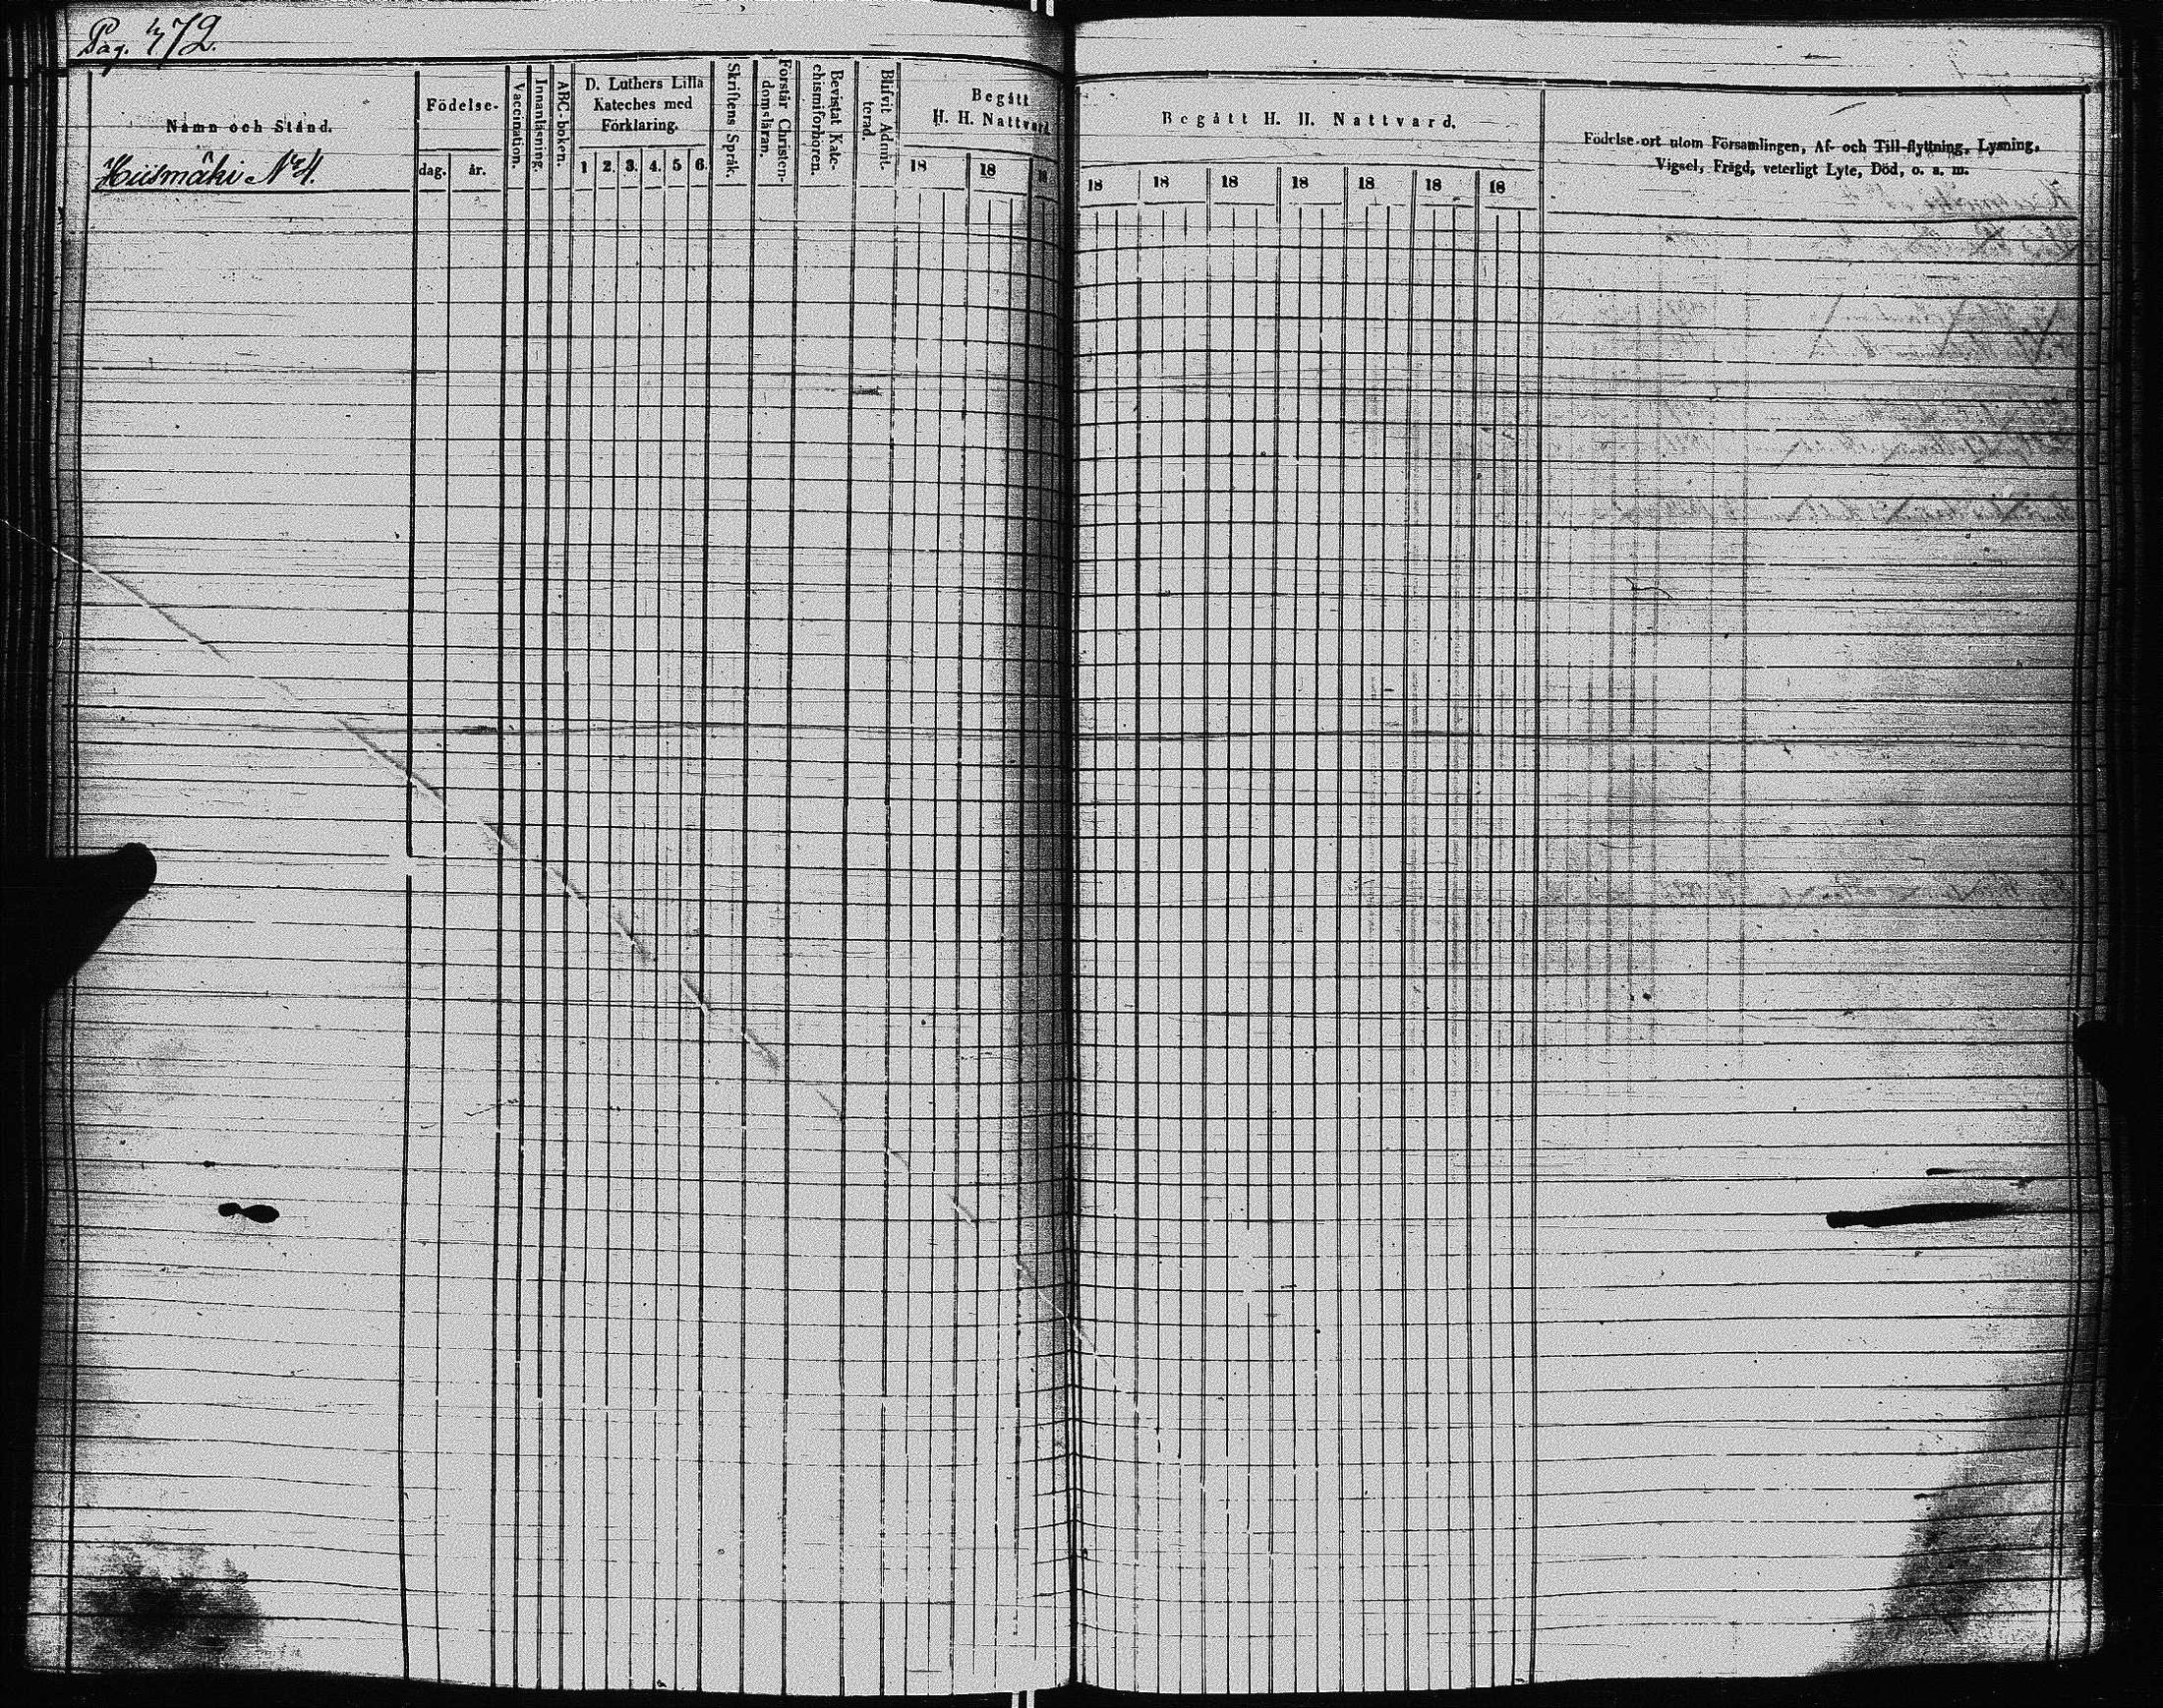 Pag. 472.
Namn och Stånd.
Hiismäki No 4.
Födelse-
dag. år.
Vaccination.
Innanläsning.
ABC-boken.
D. Luthers Lilla
Kateches med
Förklaring.
1 2. 3. 4. 5 6.
Skriftens Språk.
Förstår Christen-
domsläran.
Bevistat Kate-
chismiförhören.
Blifvit Admit-
terad.
Begått
H. H. Nattvard.
18 18 18
Begått H. H. Nattvard.
18 18 18 18 18 18 18
Födelse-ort utom Församlingen, Af- och Till-flyttning, Lysning,
Vigsel, Frägd, veterligt Lyte, Död, o. s. m.